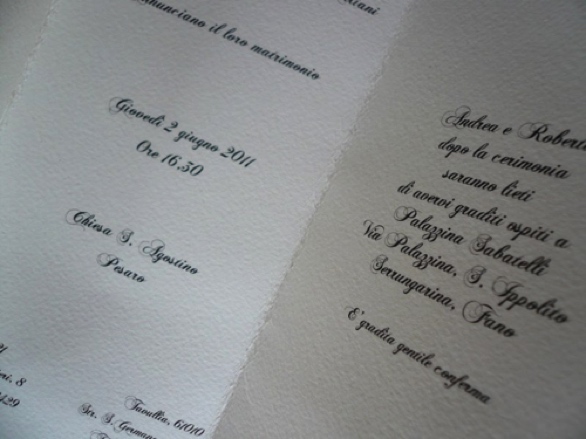 annunciano il loro matrimonio
Giovedì 2 giugno 2011
Ore 16,30
Chiesa S. Agostino
Pesaro
Tavullia, 61010
Andrea e Roberta
dopo la cerimonia
saranno lieti
di avervi graditi ospiti a
Palazzina Sabatelli
Via Palazzina, S. Ippolito
Serrungarina, Fano
E' gradita gentile conferma